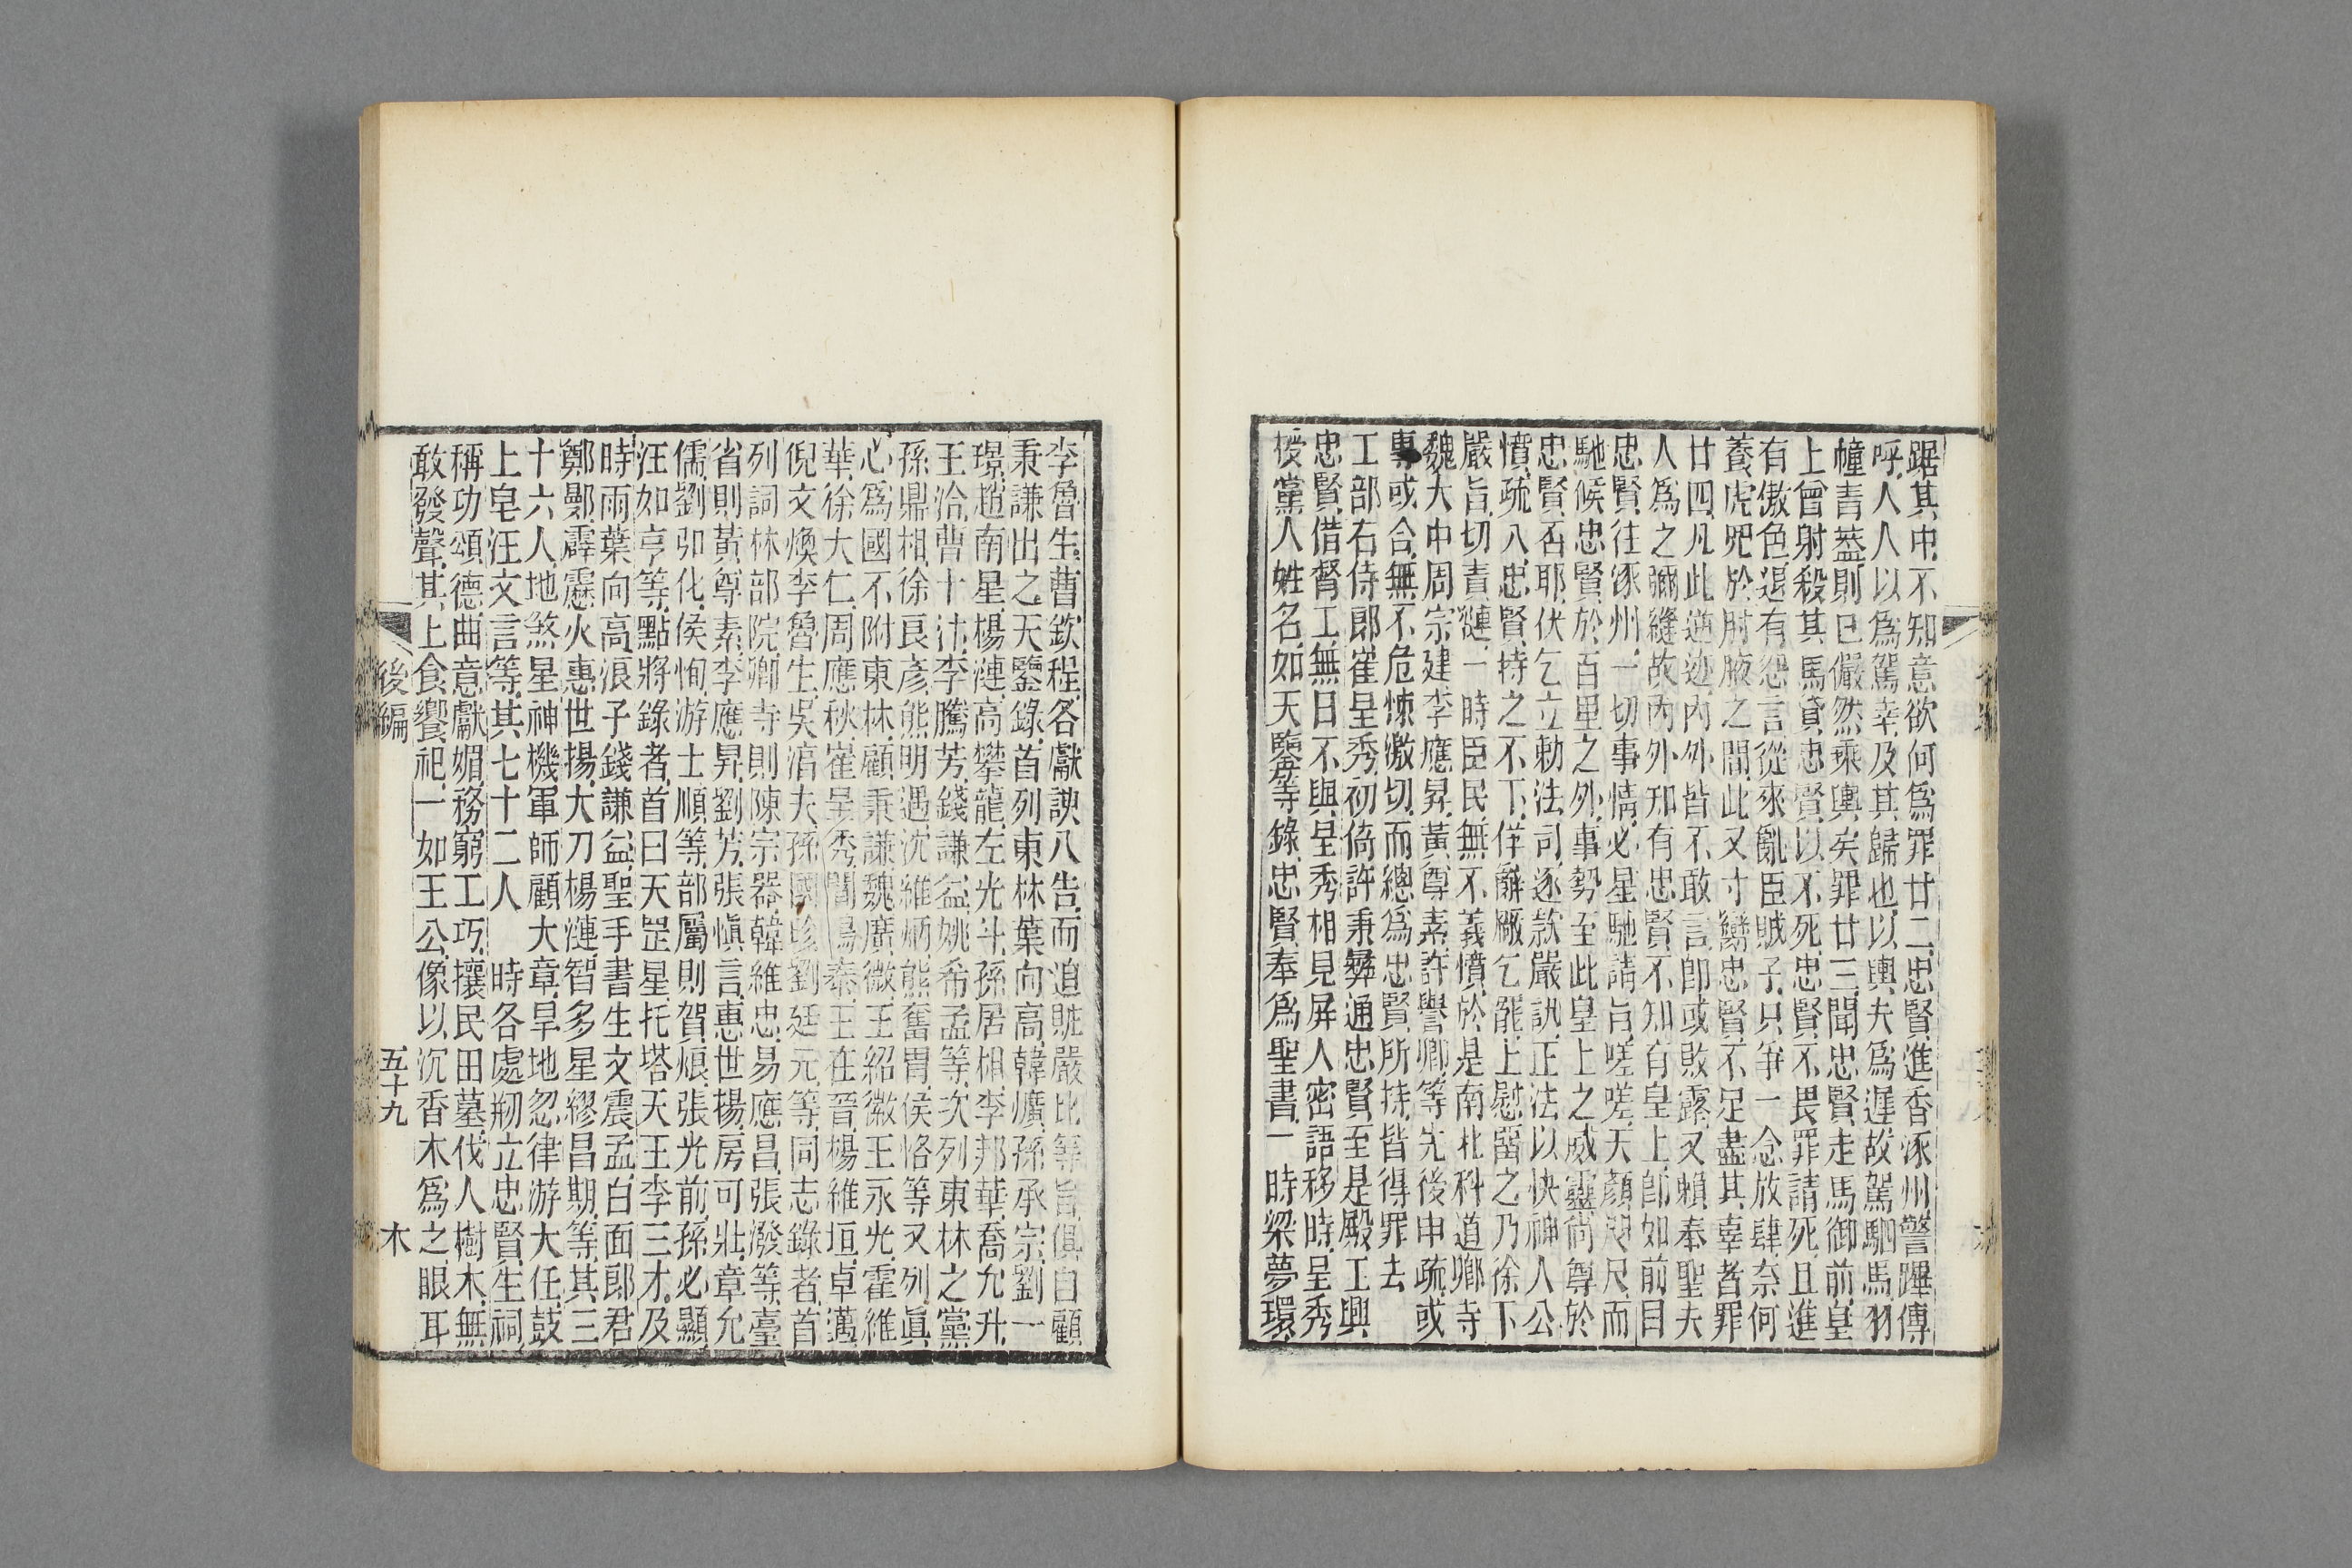 踞其中不知意欲何爲罪廿二忠賢進香涿州警蹕傳
呼人人以爲駕幸及其歸也以輿夫爲遲故駕駟馬羽
幢青蓋則已儼然乘輿矣罪廿三聞忠賢走馬御前皇
上曾射殺其馬貸忠賢以不死忠賢不畏罪請死且進
有傲色退有怨言從來亂臣賊子只争一念放肆奈何
養虎兕於肘腋之間此又寸臠忠賢不足盡其辜者罪
廿四凡此逆迹内外皆不敢言卽或敗露又賴奉聖夫
人爲之彌縫故内外知有忠賢不知有皇上卽如前目
忠賢往涿州一切事情必星馳請旨嗟嗟天顔咫尺而
馳候忠賢於百里之外事勢至此皇上之威靈尙尊於
忠賢否耶伏乞立勅法司逐款嚴訊正法以快神人公
憤疏入忠賢持之不下佯辭厰乞罷上慰留之乃徐下
嚴旨切責漣一時臣民無不義憤於是南北科道卿寺
魏大中周宗建李應昇黃尊素許譽卿等先後申疏或
專或合無不危悚激切而總爲忠賢所持皆得罪去
工部右侍郎崔呈秀初倚許秉彝通忠賢至是殿工興
忠賢借督工無日不與呈秀相見屏人密語移時呈秀
授黨人姓名如天鑒等錄忠賢奉爲聖書一時梁夢環
李魯生曹欽程各獻諛八告而追贓嚴比等旨俱自顧
秉謙出之天鑒錄首列東林葉向高韓爌孫承宗劉一
璟趙南星楊漣高攀龍左光斗孫居相李邦華喬允升
王洽曹于汴李騰芳錢謙益姚希孟等次列東林之黨
孫鼎相徐良彦熊明遇沈維炳熊奮胃侯恪等又列眞
心爲國不附東林顧秉謙魏廣微王紹徽王永光霍維
華徐大仁周應秋崔呈秀閻鳴泰王在晉楊維垣卓邁
倪文煥李魯生吳淯夫孫國珍劉廷元等同志錄者首
列詞林部院卿寺則陳宗器韓維忠易應昌張潑等臺
省則黃尊素李應昇劉芳張愼言惠世揚房可壯章允
儒劉弘化侯恂游士順等部屬則賀烺張光前孫必顯
汪如亨等點將錄者首曰天罡星托塔天王李三才及
時雨葉向高浪子錢謙益聖手書生文震孟白面郎君
鄭鄤霹靂火惠世揚大刀楊漣智多星繆昌期等其三
十六人地煞星神機軍師顧大章旱地忽律游大任鼓
上皂汪文言等其七十二人　時各處剏立忠賢生祠
稱功頌德曲意獻媚務窮工巧攘民田墓伐人樹木無
敢發聲其上食饗祀一如王公像以沉香木爲之眼耳
後編　五十九　木